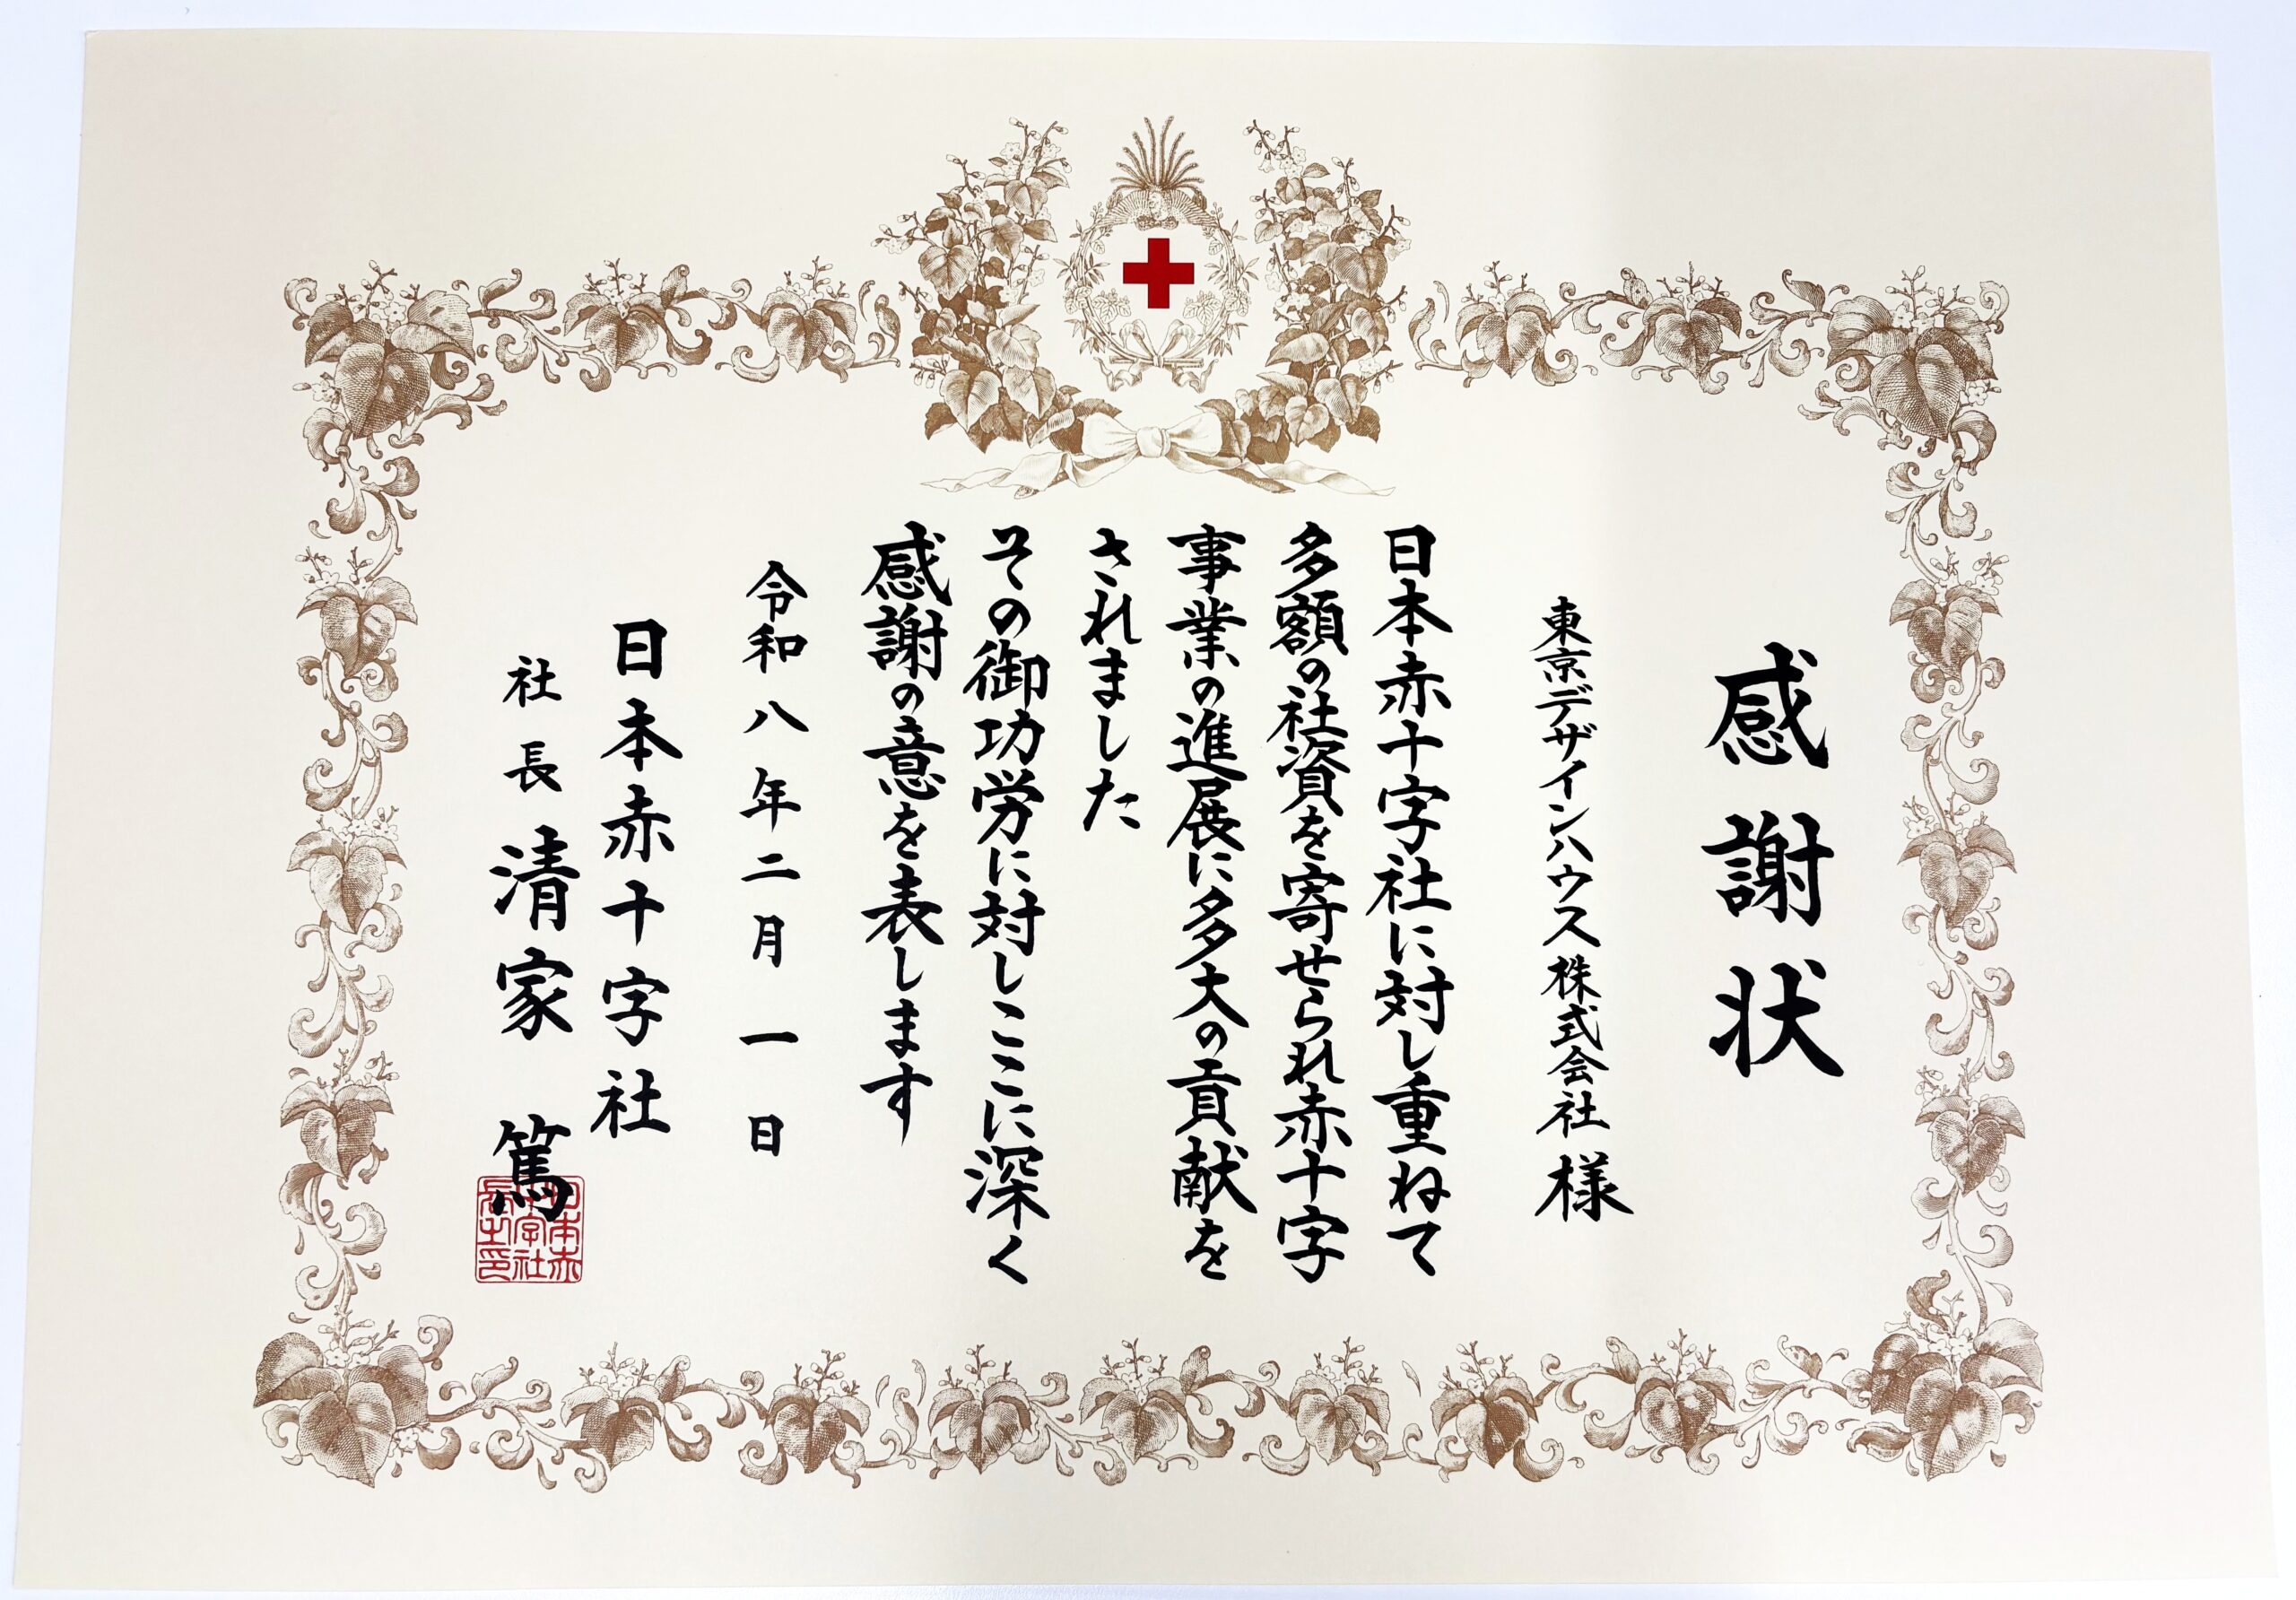 感謝状
東京デザインハウス株式会社様
日本赤十字社に対し重ねて
多額の社資を寄せられ赤十字
事業の進展に多大の貢献を
されました
その御功労に対しここに深く
感謝の意を表します
令和八年二月一日
日本赤十字社
社長 清家 篤
日本赤十字社長之印